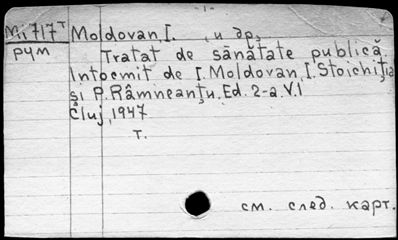 - 1 -
Mi 717 т Moldovan, I. и др.
рум Tratat de sănătate publică.
Intocmit de I. Moldovan, I. Stoichiția
și P. Râmneanțu. Ed. 2-a. V. I
Cluj, 1947
т.
см. след. карт.